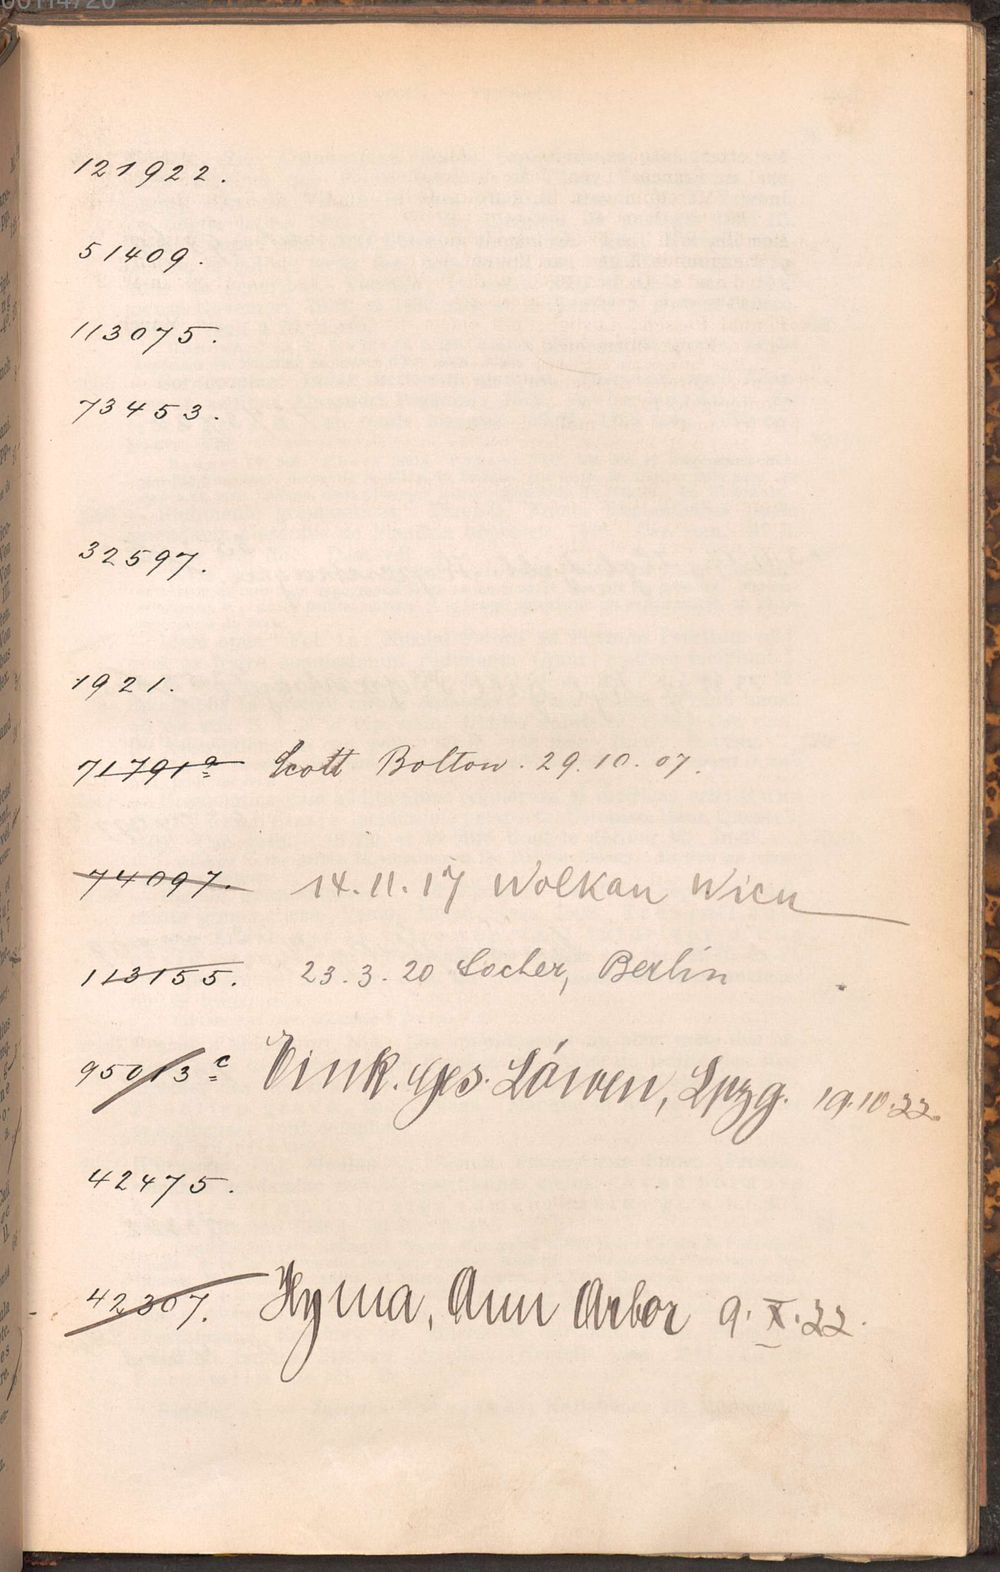 121922.
51409.
113075.
73453.
32597.
1921.
71791a Scott Bolton. 29.10.07.
74097. 14.11.17 Wolkan Wien
113155. 23.3.20 Locher, Berlin
95013c Eink. Ges. Löwen, Lpzg. 19.10.22.
42475.
42307. Hyma, Ann Arbor 9.X.22.